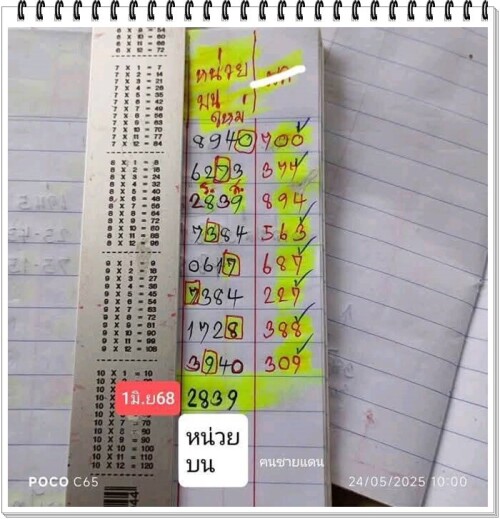 6 X 9 = 54
6 X 10 = 60
6 X 11 = 66
6 X 12 = 72
7 X 1 = 7
7 X 2 = 14
7 X 3 = 21
7 X 4 = 28
7 X 5 = 35
7 X 6 = 42
7 X 7 = 49
7 X 8 = 56
7 X 9 = 63
7 X 10 = 70
7 X 11 = 77
7 X 12 = 84
8 X 1 = 8
8 X 2 = 16
8 X 3 = 24
8 X 4 = 32
8 X 5 = 40
8 X 6 = 48
8 X 7 = 56
8 X 8 = 64
8 X 9 = 72
8 X 10 = 80
8 X 11 = 88
8 X 12 = 96
9 X 1 = 9
9 X 2 = 18
9 X 3 = 27
9 X 4 = 36
9 X 5 = 45
9 X 6 = 54
9 X 7 = 63
9 X 8 = 72
9 X 9 = 81
9 X 10 = 90
9 X 11 = 99
9 X 12 = 108
10 X 1 = 10
10 X 7 = 70
10 X 8 = 80
10 X 9 = 90
10 X 10 = 100
10 X 11 = 110
10 X 12 = 120
หน่วย
บน
ใหม่
8940 700
6273 374
ร. ก.
2839 894
7384 563
0617 687
7384 227
1728 388
3940 309
1มิ.ย68 2839
หน่วย
บน
คนชายแดน
POCO C65
24/05/2025 10:00